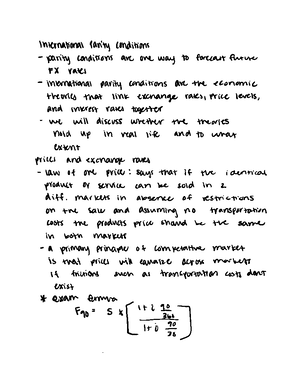 International Parity Conditions
- parity conditions are one way to forecast future
FX rates
- international parity conditions are the economic
theories that link exchange rates, price levels,
and interest rates together
- we will discuss whether the theories
hold up in real life and to what
extent
prices and exchange rates
- law of one price: says that if the identical
product or service can be sold in 2
diff. markets in absence of restrictions
on the sale and assuming no transportation
costs the products price should be the same
in both markets
- a primary principle of competitive market
is that prices will equalize across markets
if frictions such as transportation costs don't
exist
* exam formula
F90 = S x [
1 + i 90/360
1 + i 90/36
]